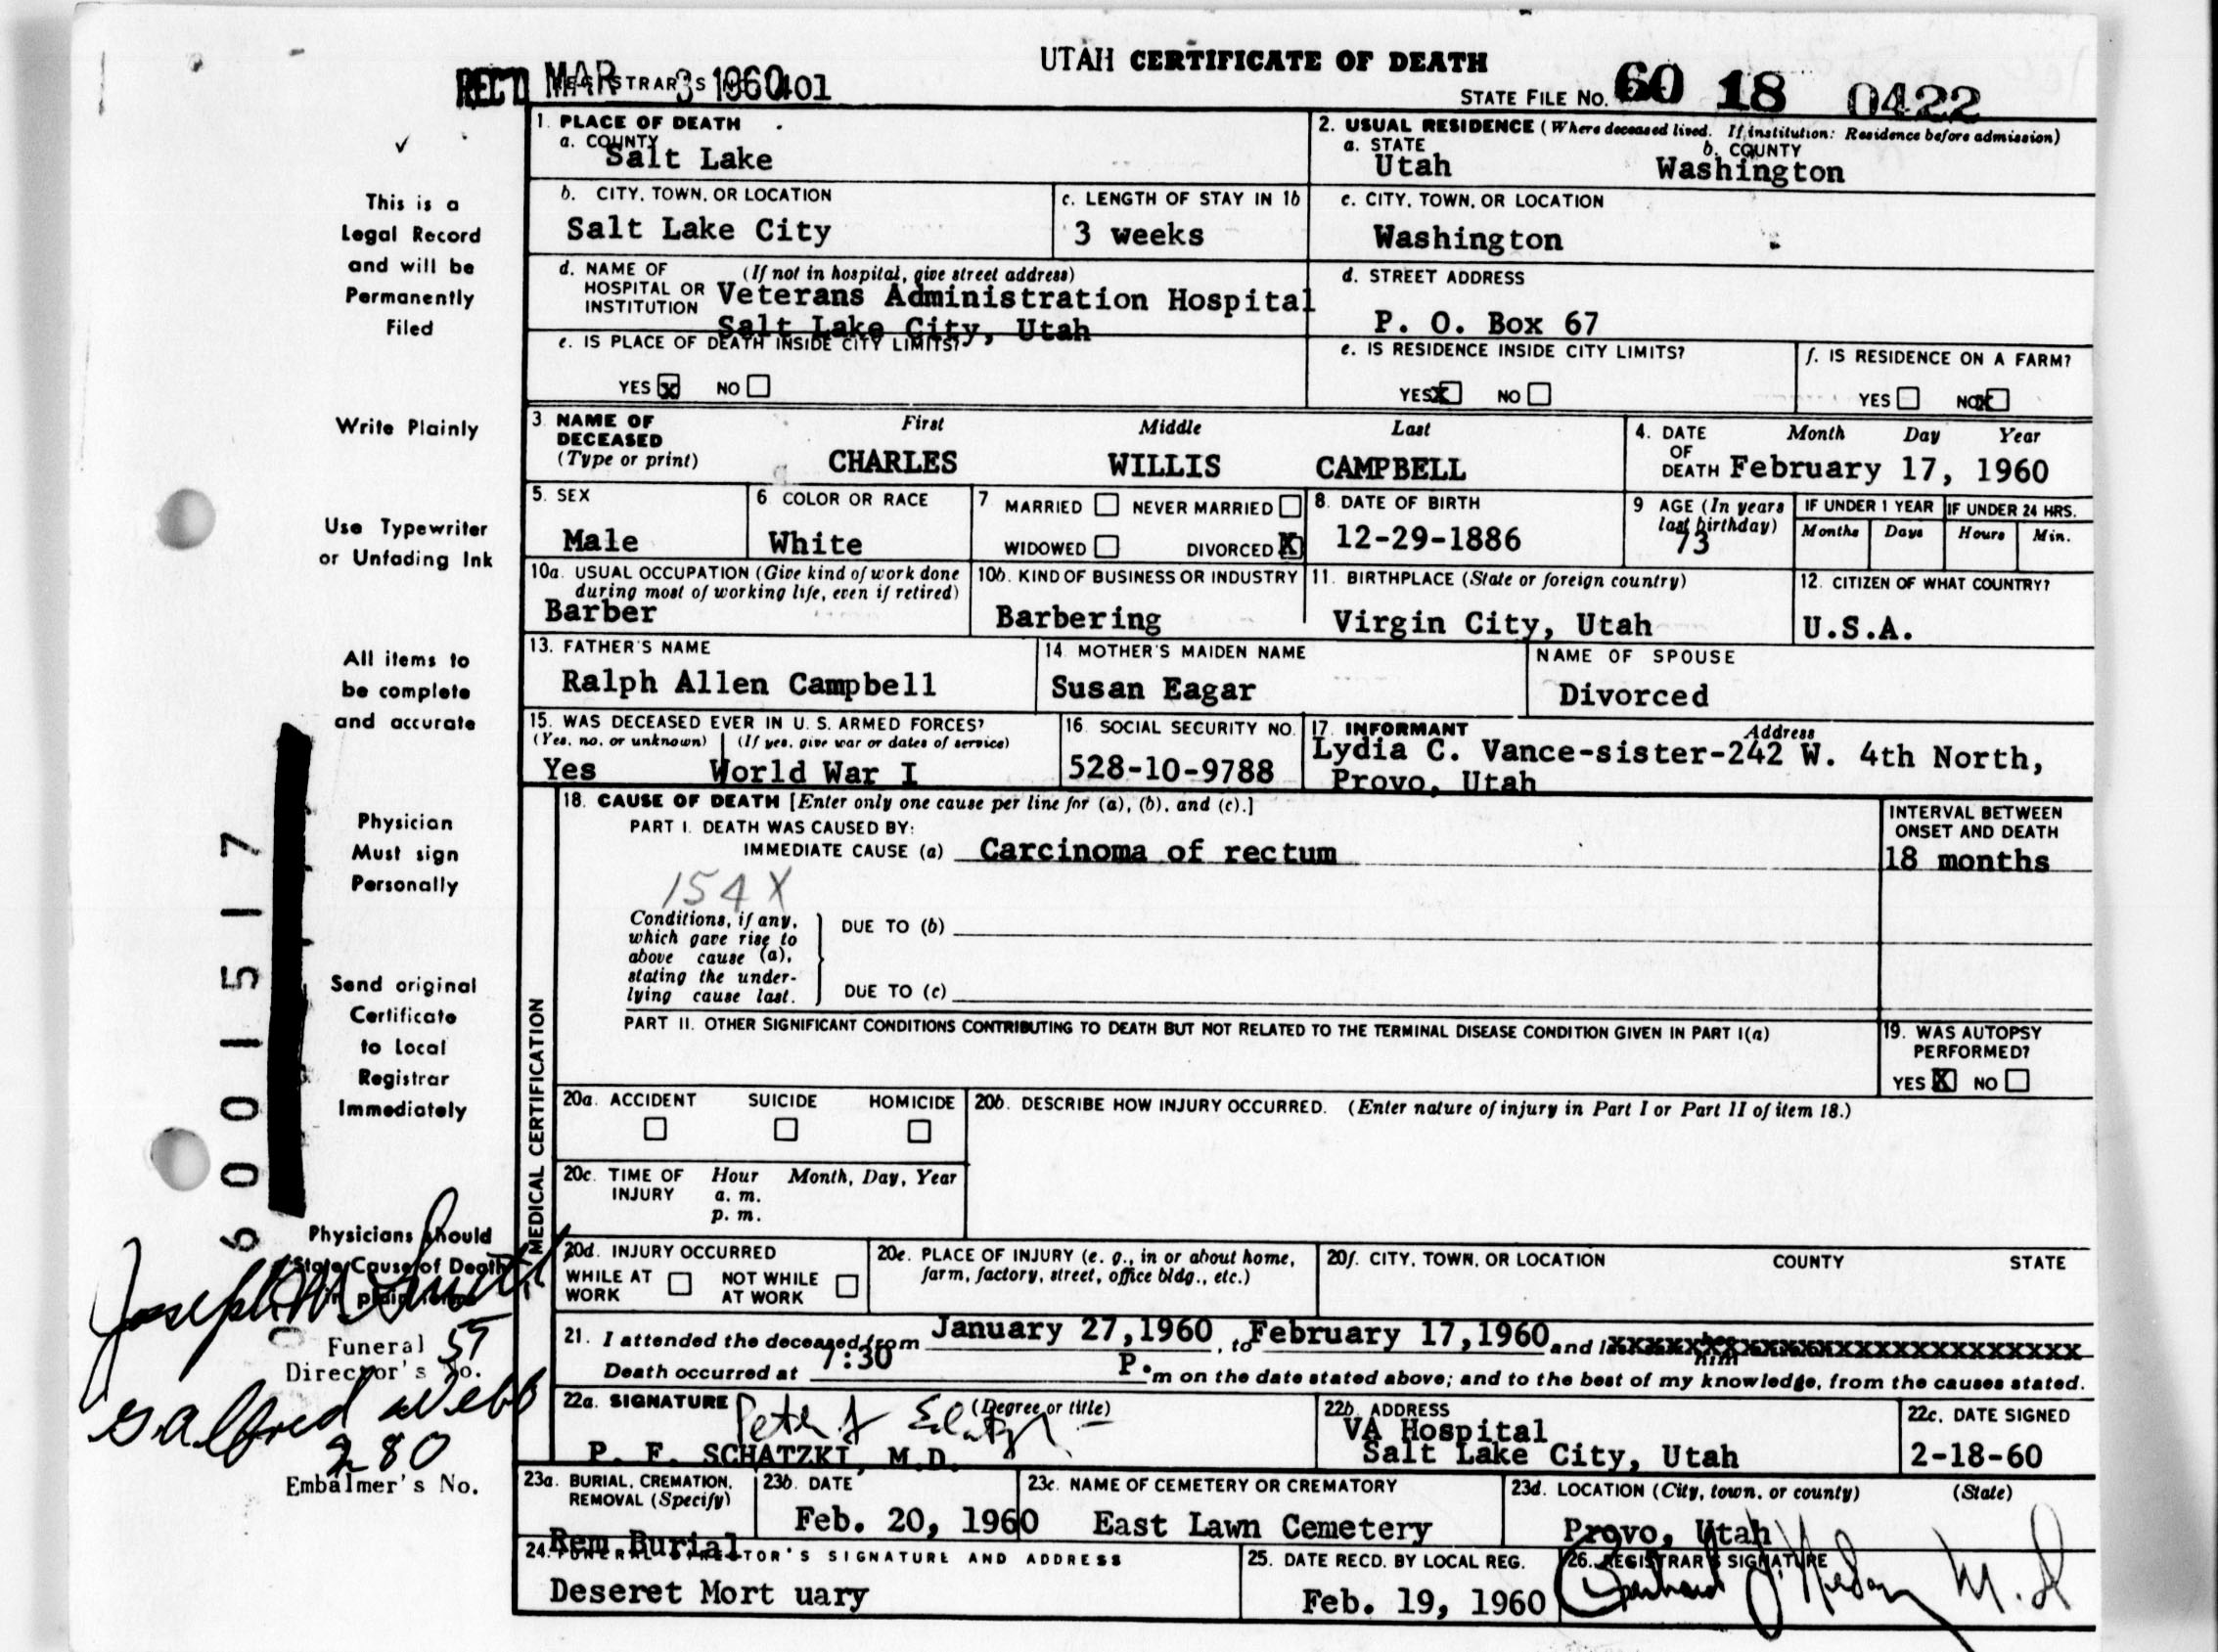 UTAH CERTIFICATE OF DEATH
REC'D MAR 3 1960 REGISTRAR'S 401
STATE FILE No. 60 18 0422
This is a
Legal Record
and will be
Permanently
Filed
Write Plainly
Use Typewriter
or Unfading Ink
All items to
be complete
and accurate
Physician
Must sign
Personally
Send original
Certificate
to Local
Registrar
Immediately
Physicians should
State Cause of Death
in plain
6001517
Joseph M Smith
Funeral 57
Director's No.
Galfred Webb
280
Embalmer's No.
1. PLACE OF DEATH
a. COUNTY
Salt Lake
2. USUAL RESIDENCE (Where deceased lived. If institution: Residence before admission)
a. STATE b. COUNTY
Utah Washington
b. CITY, TOWN, OR LOCATION
Salt Lake City
c. LENGTH OF STAY IN 1b
3 weeks
c. CITY, TOWN, OR LOCATION
Washington
d. NAME OF (If not in hospital, give street address)
HOSPITAL OR
INSTITUTION
Veterans Administration Hospital
Salt Lake City, Utah
d. STREET ADDRESS
P. O. Box 67
e. IS PLACE OF DEATH INSIDE CITY LIMITS?
YES X NO
e. IS RESIDENCE INSIDE CITY LIMITS?
YES X NO
f. IS RESIDENCE ON A FARM?
YES NO X
3 NAME OF
DECEASED
(Type or print)
First Middle Last
CHARLES WILLIS CAMPBELL
4. DATE Month Day Year
OF
DEATH February 17, 1960
5. SEX
Male
6. COLOR OR RACE
White
7 MARRIED NEVER MARRIED
WIDOWED DIVORCED X
8. DATE OF BIRTH
12-29-1886
9 AGE (In years
last birthday)
73
IF UNDER 1 YEAR
Months Days
IF UNDER 24 HRS.
Hours Min.
10a. USUAL OCCUPATION (Give kind of work done
during most of working life, even if retired)
Barber
10b. KIND OF BUSINESS OR INDUSTRY
Barbering
11. BIRTHPLACE (State or foreign country)
Virgin City, Utah
12. CITIZEN OF WHAT COUNTRY?
U.S.A.
13. FATHER'S NAME
Ralph Allen Campbell
14. MOTHER'S MAIDEN NAME
Susan Eagar
NAME OF SPOUSE
Divorced
15. WAS DECEASED EVER IN U. S. ARMED FORCES?
(Yes, no, or unknown) (If yes, give war or dates of service)
Yes World War I
16. SOCIAL SECURITY NO.
528-10-9788
17. INFORMANT Address
Lydia C. Vance-sister-242 W. 4th North,
Provo, Utah
MEDICAL CERTIFICATION
18. CAUSE OF DEATH [Enter only one cause per line for (a), (b), and (c).]
PART I. DEATH WAS CAUSED BY:
IMMEDIATE CAUSE (a) Carcinoma of rectum
INTERVAL BETWEEN
ONSET AND DEATH
18 months
154X
Conditions, if any,
which gave rise to
above cause (a),
stating the under-
lying cause last.
DUE TO (b)
DUE TO (c)
PART II. OTHER SIGNIFICANT CONDITIONS CONTRIBUTING TO DEATH BUT NOT RELATED TO THE TERMINAL DISEASE CONDITION GIVEN IN PART I(a)
19. WAS AUTOPSY
PERFORMED?
YES X NO
20a. ACCIDENT SUICIDE HOMICIDE
20b. DESCRIBE HOW INJURY OCCURRED. (Enter nature of injury in Part I or Part II of item 18.)
20c. TIME OF Hour Month, Day, Year
INJURY a. m.
p. m.
20d. INJURY OCCURRED
WHILE AT NOT WHILE
WORK AT WORK
20e. PLACE OF INJURY (e. g., in or about home,
farm, factory, street, office bldg., etc.)
20f. CITY, TOWN, OR LOCATION COUNTY STATE
21. I attended the deceased from January 27,1960, to February 17,1960 and
Death occurred at 7:30 P.m on the date stated above; and to the best of my knowledge, from the causes stated.
22a. SIGNATURE (Degree or title)
P. F. SCHATZKI, M.D.
22b. ADDRESS
VA Hospital
Salt Lake City, Utah
22c. DATE SIGNED
2-18-60
23a. BURIAL, CREMATION,
REMOVAL (Specify)
Rem Burial
23b. DATE
Feb. 20, 1960
23c. NAME OF CEMETERY OR CREMATORY
East Lawn Cemetery
23d. LOCATION (City, town, or county) (State)
Provo, Utah
24. FUNERAL DIRECTOR'S SIGNATURE AND ADDRESS
Deseret Mort uary
25. DATE RECD. BY LOCAL REG.
Feb. 19, 1960
26. REGISTRAR'S SIGNATURE